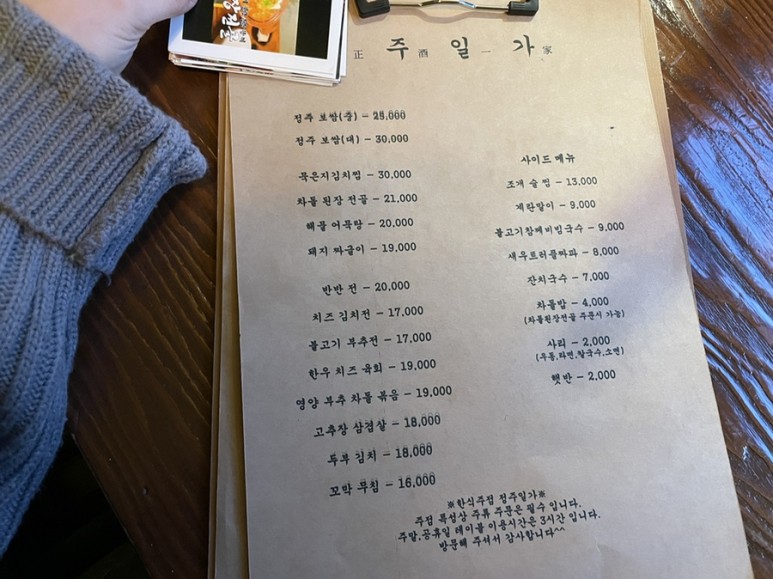 正 주 酒 일 一 가 家
정주 보쌈(중) - 25,000
정주 보쌈(대) - 30,000
묵은지김치찜 - 30,000
차돌 된장 전골 - 21,000
해물 어묵탕 - 20,000
돼지 짜글이 - 19,000
반반 전 - 20,000
치즈 김치전 - 17,000
불고기 부추전 - 17,000
한우 치즈 육회 - 19,000
영양 부추 차돌 볶음 - 19,000
고추장 삼겹살 - 18,000
두부 김치 - 18,000
꼬막 무침 - 16,000
사이드 메뉴
조개 술 찜 - 13,000
계란말이 - 9,000
불고기참깨비빔국수 - 9,000
새우트러플파파 - 8,000
잔치국수 - 7,000
차돌밥 - 4,000
(차돌된장전골 주문시 가능)
사리 - 2,000
(우동,라면,칼국수,소면)
햇반 - 2,000
※한식주점 정주일가※
주점 특성상 주류 주문은 필수 입니다.
주말,공휴일 테이블 이용시간은 3시간 입니다.
방문해 주셔서 감사합니다^^